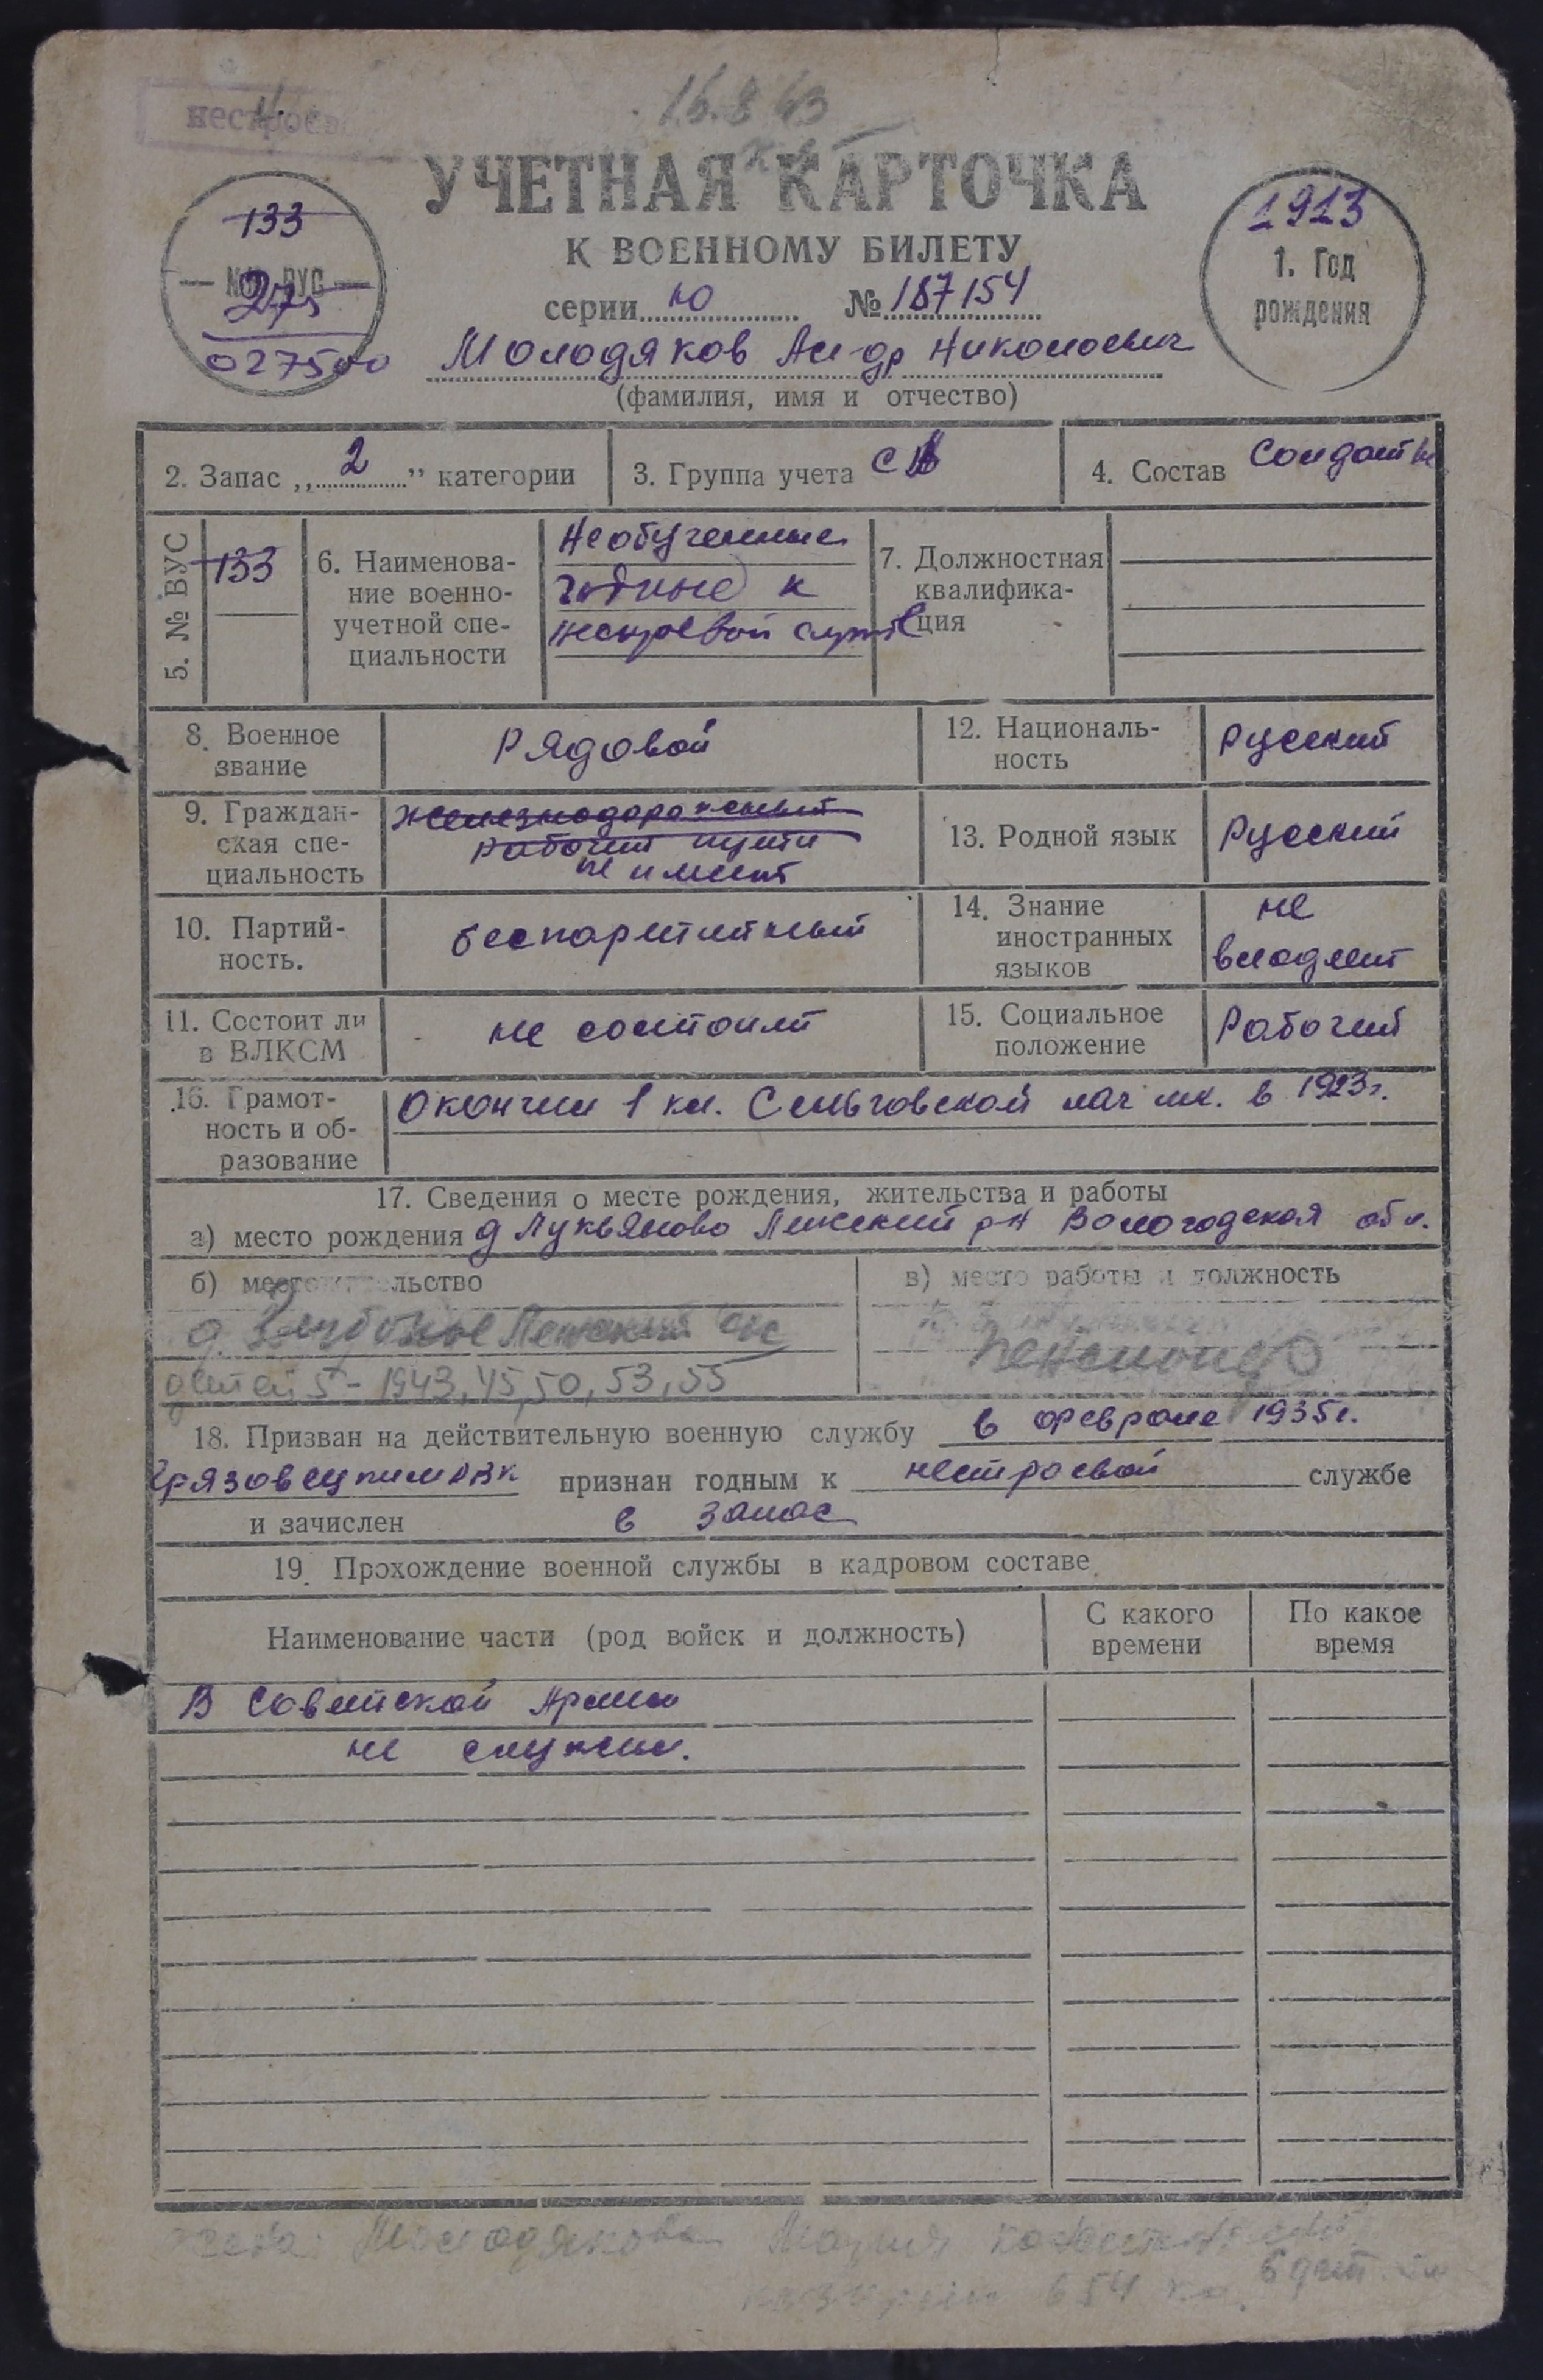 нестроев
16.8.63
УЧЕТНАЯ КАРТОЧКА
К ВОЕННОМУ БИЛЕТУ
серии Ю № 187154
133
№ ВУС
275
027500
1913
1. Год
рождения
Молодяков Ал-др Николаевич
(фамилия, имя и отчество)
2. Запас „2” категории
3. Группа учета СА
4. Состав Солдатск
5. № ВУС
133
6. Наименова-
ние военно-
учетной спе-
циальности
Необученные
годные к
нестроевой службе
7. Должностная
квалифика-
ция
8. Военное
звание
Рядовой
12. Националь-
ность
Русский
9. Граждан-
ская спе-
циальность
железнодорожный
рабочий пути
не имеет
13. Родной язык
Русский
10. Партий-
ность.
беспартийный
14. Знание
иностранных
языков
не
владеет
11. Состоит ли
в ВЛКСМ
не состоит
15. Социальное
положение
Рабочий
16. Грамот-
ность и об-
разование
Окончил 1 кл. Сеньговской нач шк. в 1923г.
17. Сведения о месте рождения, жительства и работы
а) место рождения д Лукьяново Лежский р-н Вологодская обл.
б) место жительство
д. Глубокое Лежский с/с
детей 5 - 1943, 45, 50, 53, 55
в) место работы и должность
пенсионер
18. Призван на действительную военную службу в феврале 1935г.
Грязовецким РВК признан годным к нестроевой службе
и зачислен в запас
19. Прохождение военной службы в кадровом составе.
Наименование части (род войск и должность)
С какого
времени
По какое
время
В Советской Армии
не служил.
жена: Молодякова Мария